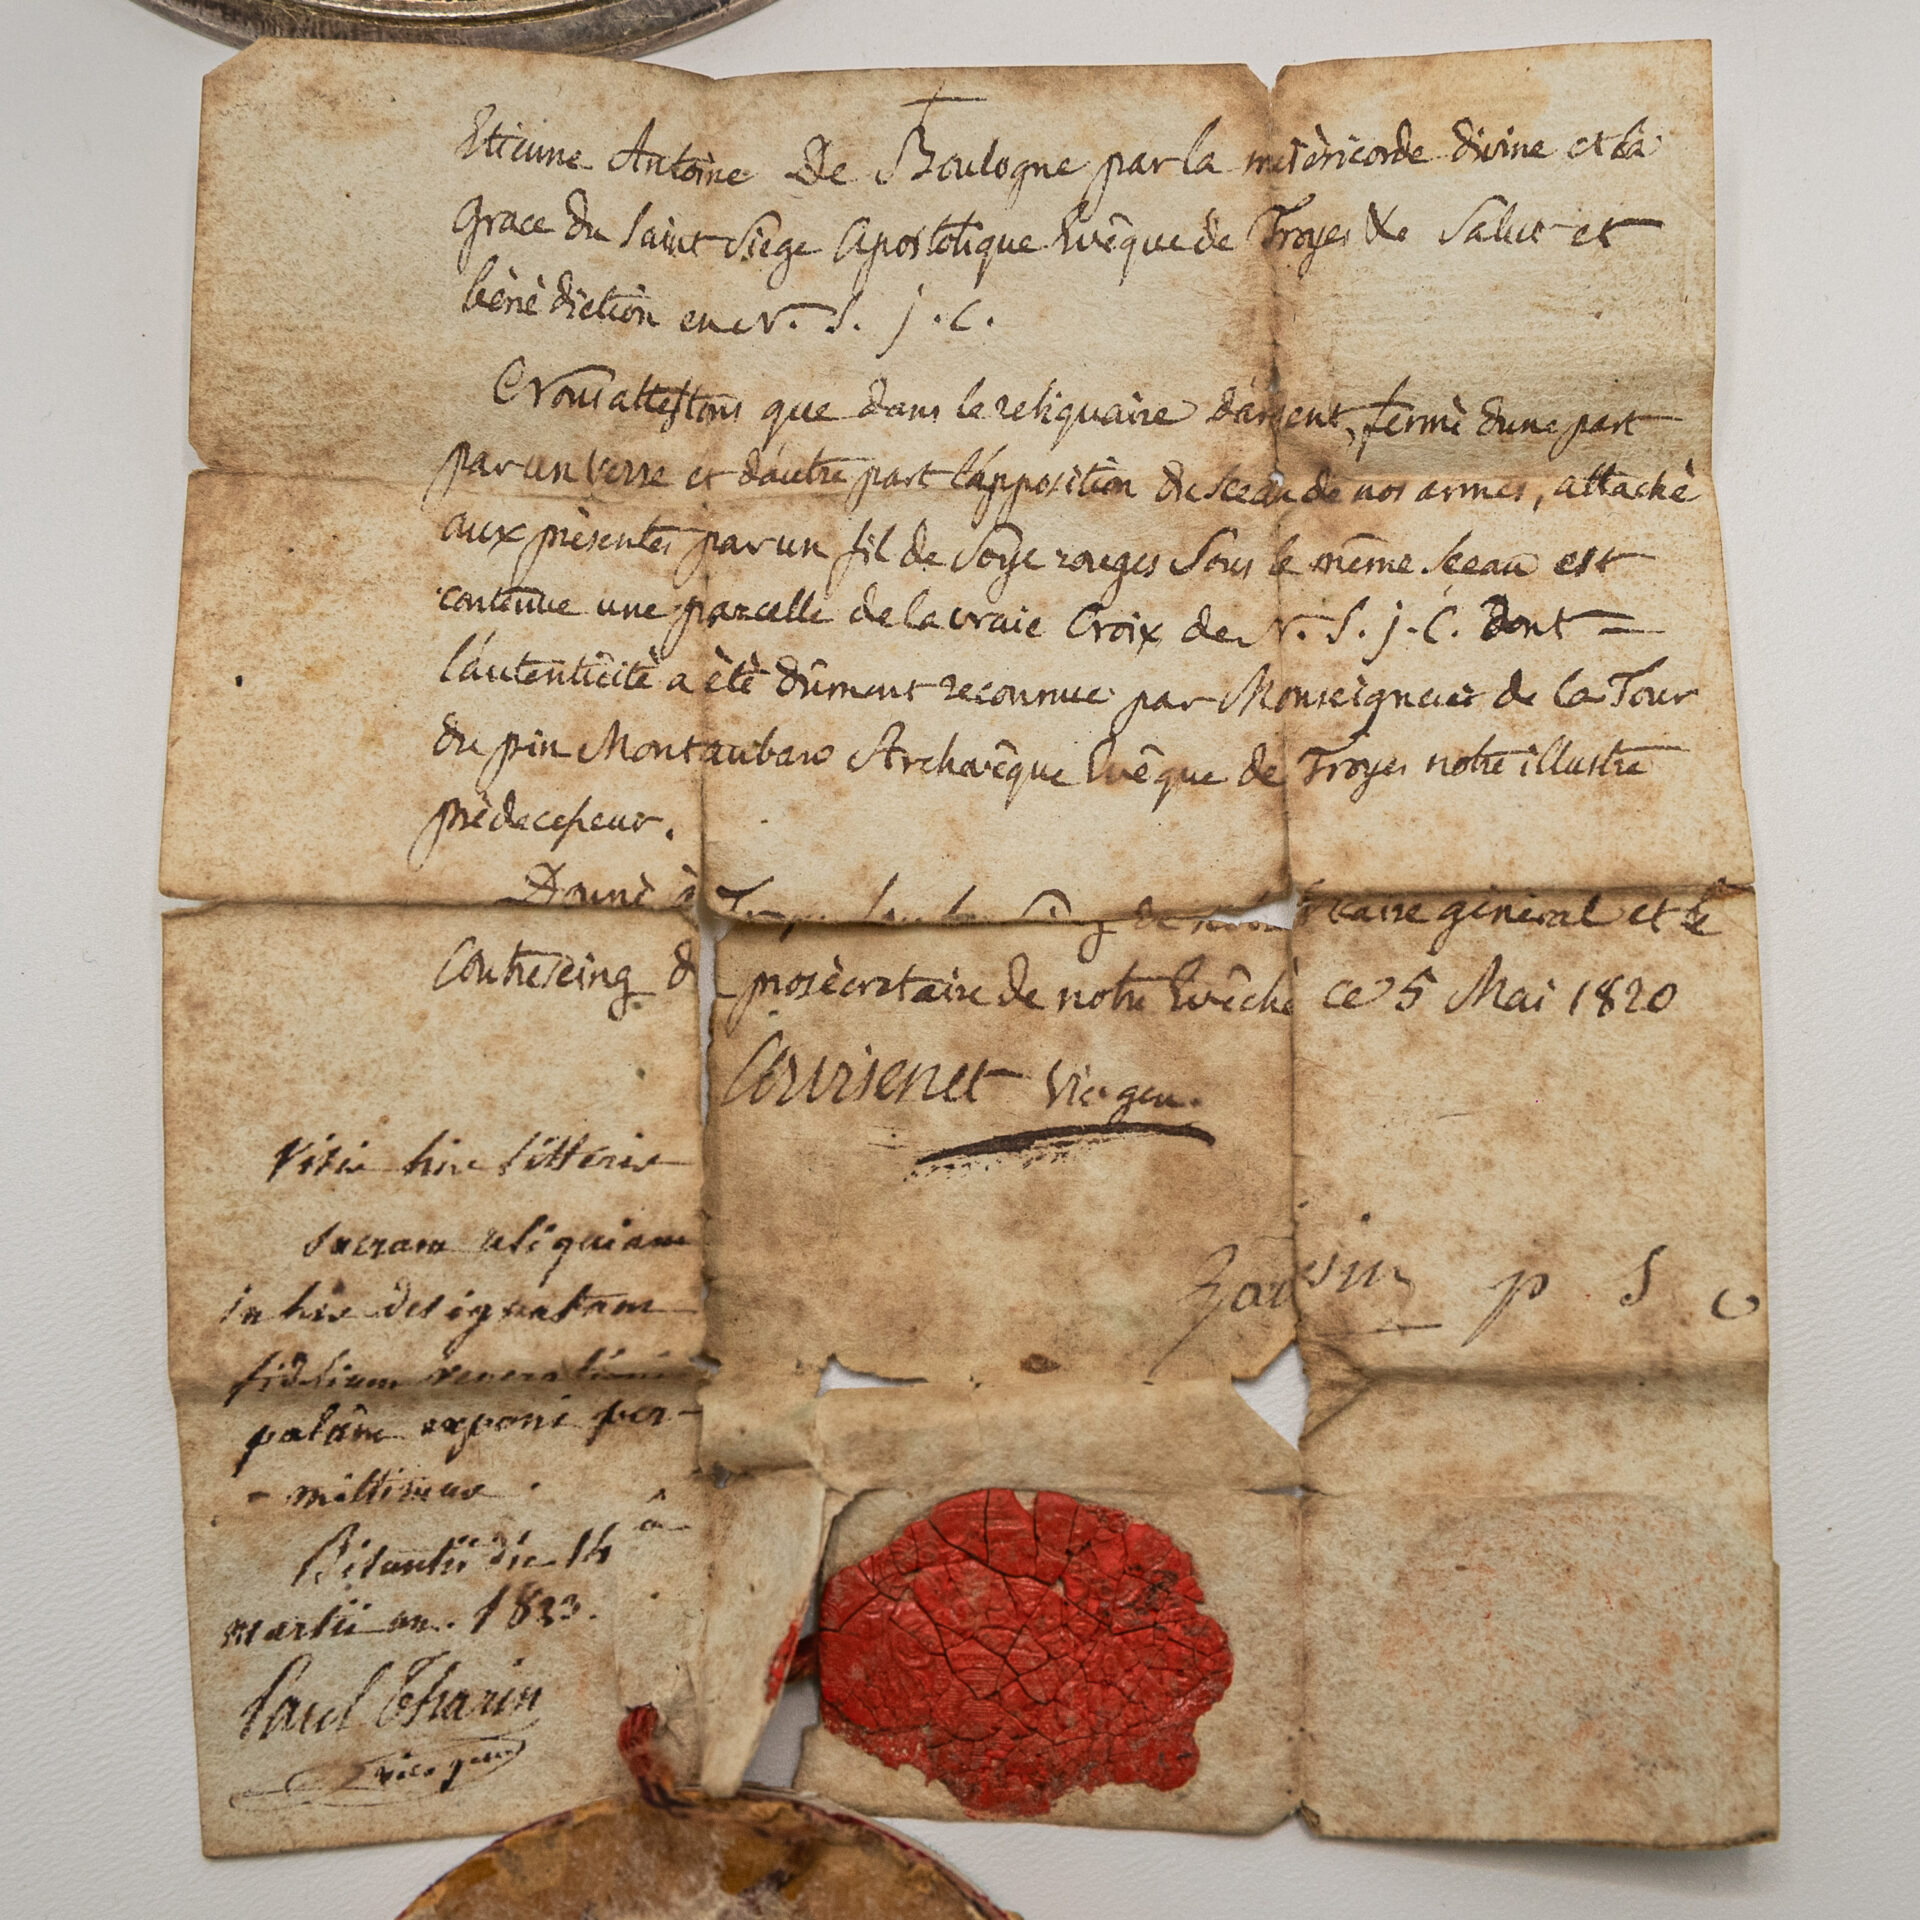 Etienne Antoine De Boulogne par la misèricorde divine et la
Grace du saint Siège Apostolique Evêque de Troyes &c Salut et
bènèdiction en N. S. j. C.
Nous attestons que dans le reliquaire d'argent, fermè d'une part
par un verre et d'autre part l'apposition du sceau de nos armes, attachè
aux prèsentes par un fil de Soÿe rouges Sous le même Sceau est
contenue une parcelle de la vraie Croix de N. S. j. C. Dont
l'autenticitè a ètè dûment reconnue par Monseigneur de la Tour
du pin Montauban Archevêque Evêque de Troyes notre illustre
prèdecesseur.
Donnè à Troyes Sous le Seing de notre vicaire gènèral et le
Contreseing du prosècretaire de notre Evêchè ce 5 Mai 1820
Vic. gen.
p S e
Visis hisce litteris
sacram reliquiam
in his designatam
fidelium venerationi
palàm exponi per-
-mittimus.
Bisuntii die 14â
martii an. 1833.
Paul Tharin
vic. gen.